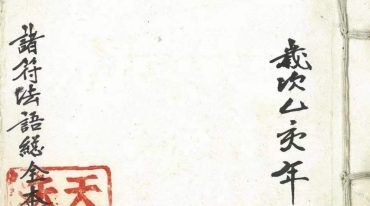 歲次乙亥年
諸符法語總全本
天